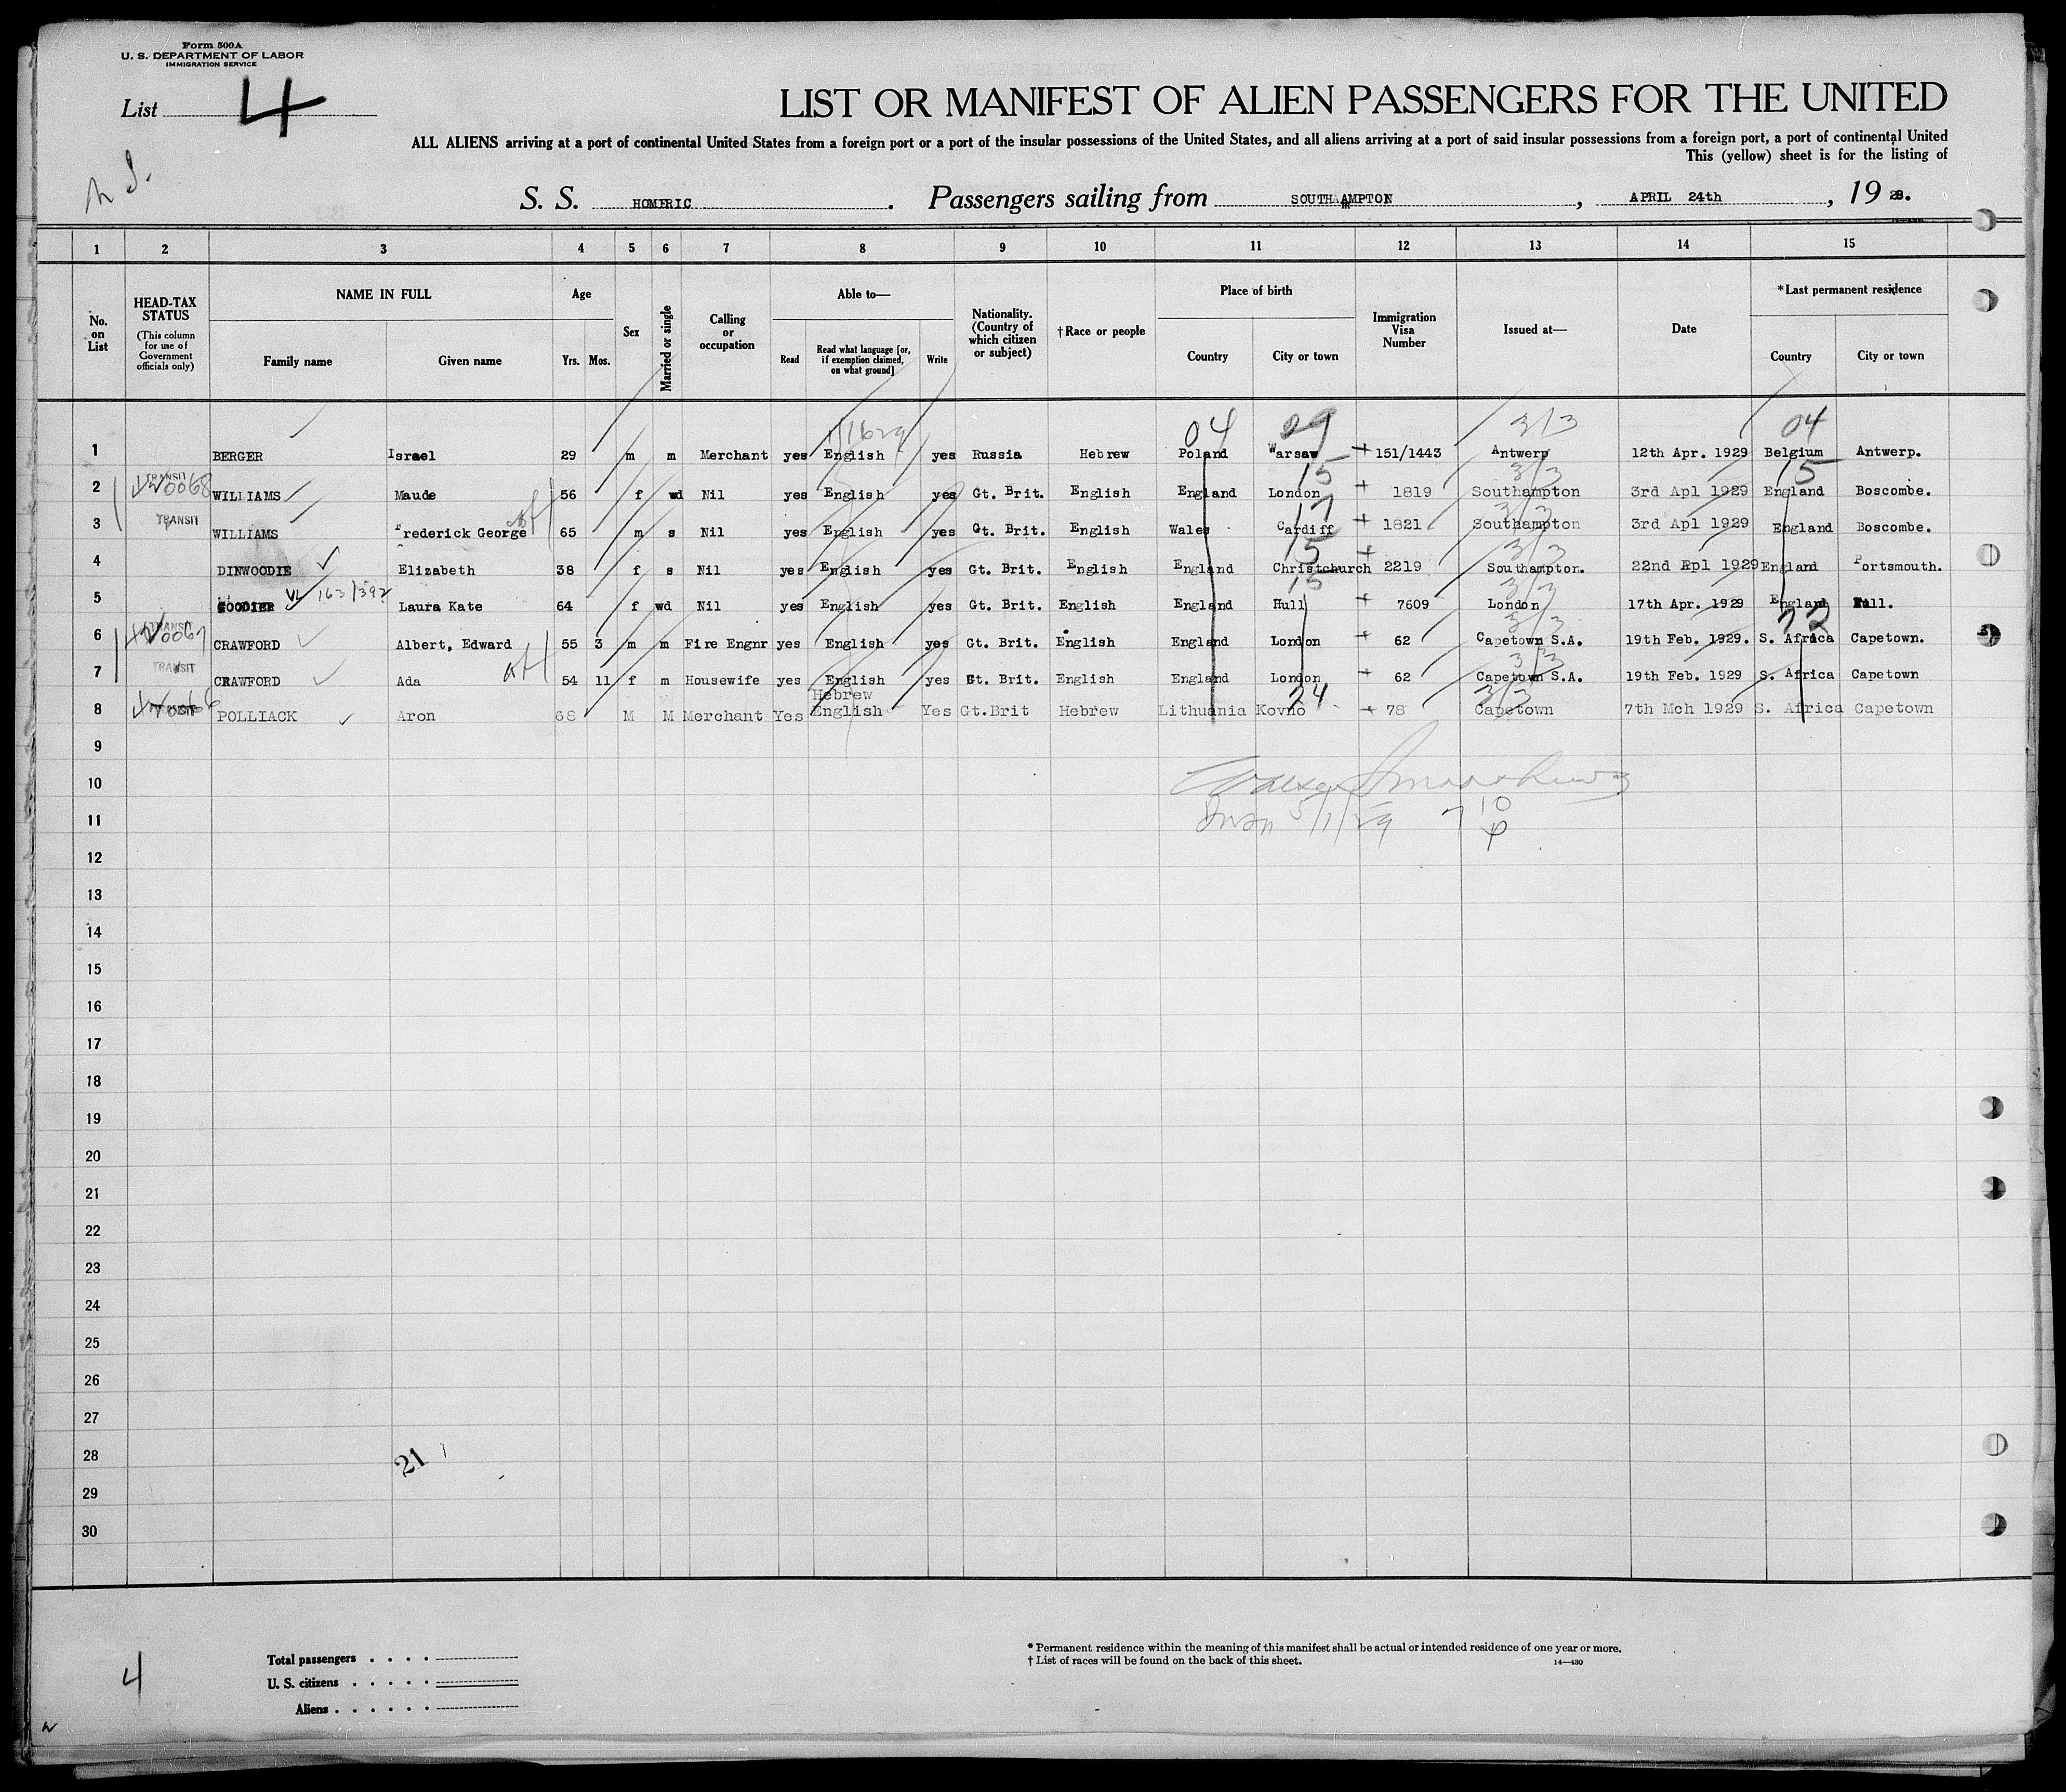 Form 500A
U. S. DEPARTMENT OF LABOR
IMMIGRATION SERVICE
List 4
LIST OR MANIFEST OF ALIEN PASSENGERS FOR THE UNITED
ALL ALIENS arriving at a port of continental United States from a foreign port or a port of the insular possessions of the United States, and all aliens arriving at a port of said insular possessions from a foreign port, a port of continental United
This (yellow) sheet is for the listing of
S. S. HOMERIC . Passengers sailing from SOUTHAMPTON , APRIL 24th , 19
1 2 3 4 5 6 7 8 9 10 11 12 13 14 15
No. on List
HEAD-TAX STATUS (This column for use of Government officials only)
NAME IN FULL
Family name Given name
Age
Yrs. Mos.
Sex
Married or single
Calling or occupation
Able to—
Read Read what language [or, if exemption claimed, on what ground] Write
Nationality. (Country of which citizen or subject)
†Race or people
Place of birth
Country City or town
Immigration Visa Number
Issued at—
Date
*Last permanent residence
Country City or town
04 29 3/3 04
1 BERGER Israel 29 m m Merchant yes English yes Russia Hebrew Poland Warsaw 151/1443 Antwerp 12th Apr. 1929 Belgium Antwerp.
TRANSIT 15 3/3 15
2 WILLIAMS Maude 56 f wd Nil yes English yes Gt. Brit. English England London 1819 Southampton 3rd Apl 1929 England Boscombe.
TRANSIT 17 3/3
3 WILLIAMS Frederick George 65 m s Nil yes English yes Gt. Brit. English Wales Cardiff 1821 Southampton 3rd Apl 1929 England Boscombe.
15 3/3
4 DINWOODIE Elizabeth 38 f s Nil yes English yes Gt. Brit. English England Christchurch 2219 Southampton. 22nd Apl 1929 England Portsmouth.
163/392 15 3/3
5 GOODIER Laura Kate 64 f wd Nil yes English yes Gt. Brit. English England Hull 7609 London 17th Apr. 1929 England Hull.
TRANSIT 3/3 72
6 CRAWFORD Albert, Edward 55 3 m m Fire Engnr yes English yes Gt. Brit. English England London 62 Capetown S.A. 19th Feb. 1929. S. Africa Capetown.
TRANSIT 3/3
7 CRAWFORD Ada 54 11 f m Housewife yes English yes Gt. Brit. English England London 62 Capetown S.A. 19th Feb. 1929 S. Africa Capetown
Hebrew 24 3/3
8 POLLIACK Aron 68 M M Merchant Yes English Yes Gt.Brit Hebrew Lithuania Kovno 78 Capetown 7th Mch 1929 S. Africa Capetown
9
10
11 5/1/29
12
13
14
15
16
17
18
19
20
21
22
23
24
25
26
27
28 21
29
30
4
Total passengers
U. S. citizens
Aliens
* Permanent residence within the meaning of this manifest shall be actual or intended residence of one year or more.
† List of races will be found on the back of this sheet.
14—430